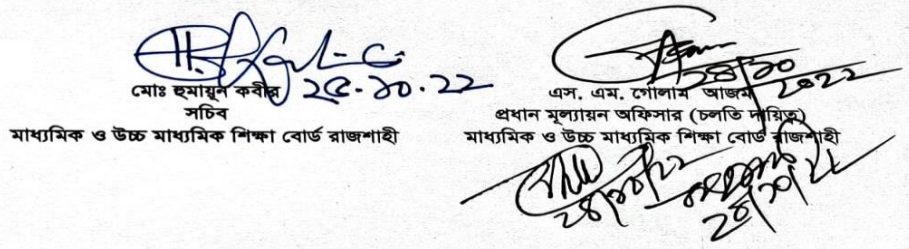 ২৫.১০.২২
মোঃ হুমায়ূন কবীর
সচিব
মাধ্যমিক ও উচ্চ মাধ্যমিক শিক্ষা বোর্ড রাজশাহী
২৪/১০/২০২২
এস. এম. গোলাম আজম
প্রধান মূল্যায়ন অফিসার (চলতি দায়িত্ব)
মাধ্যমিক ও উচ্চ মাধ্যমিক শিক্ষা বোর্ড রাজশাহী
২৪/১০/২২